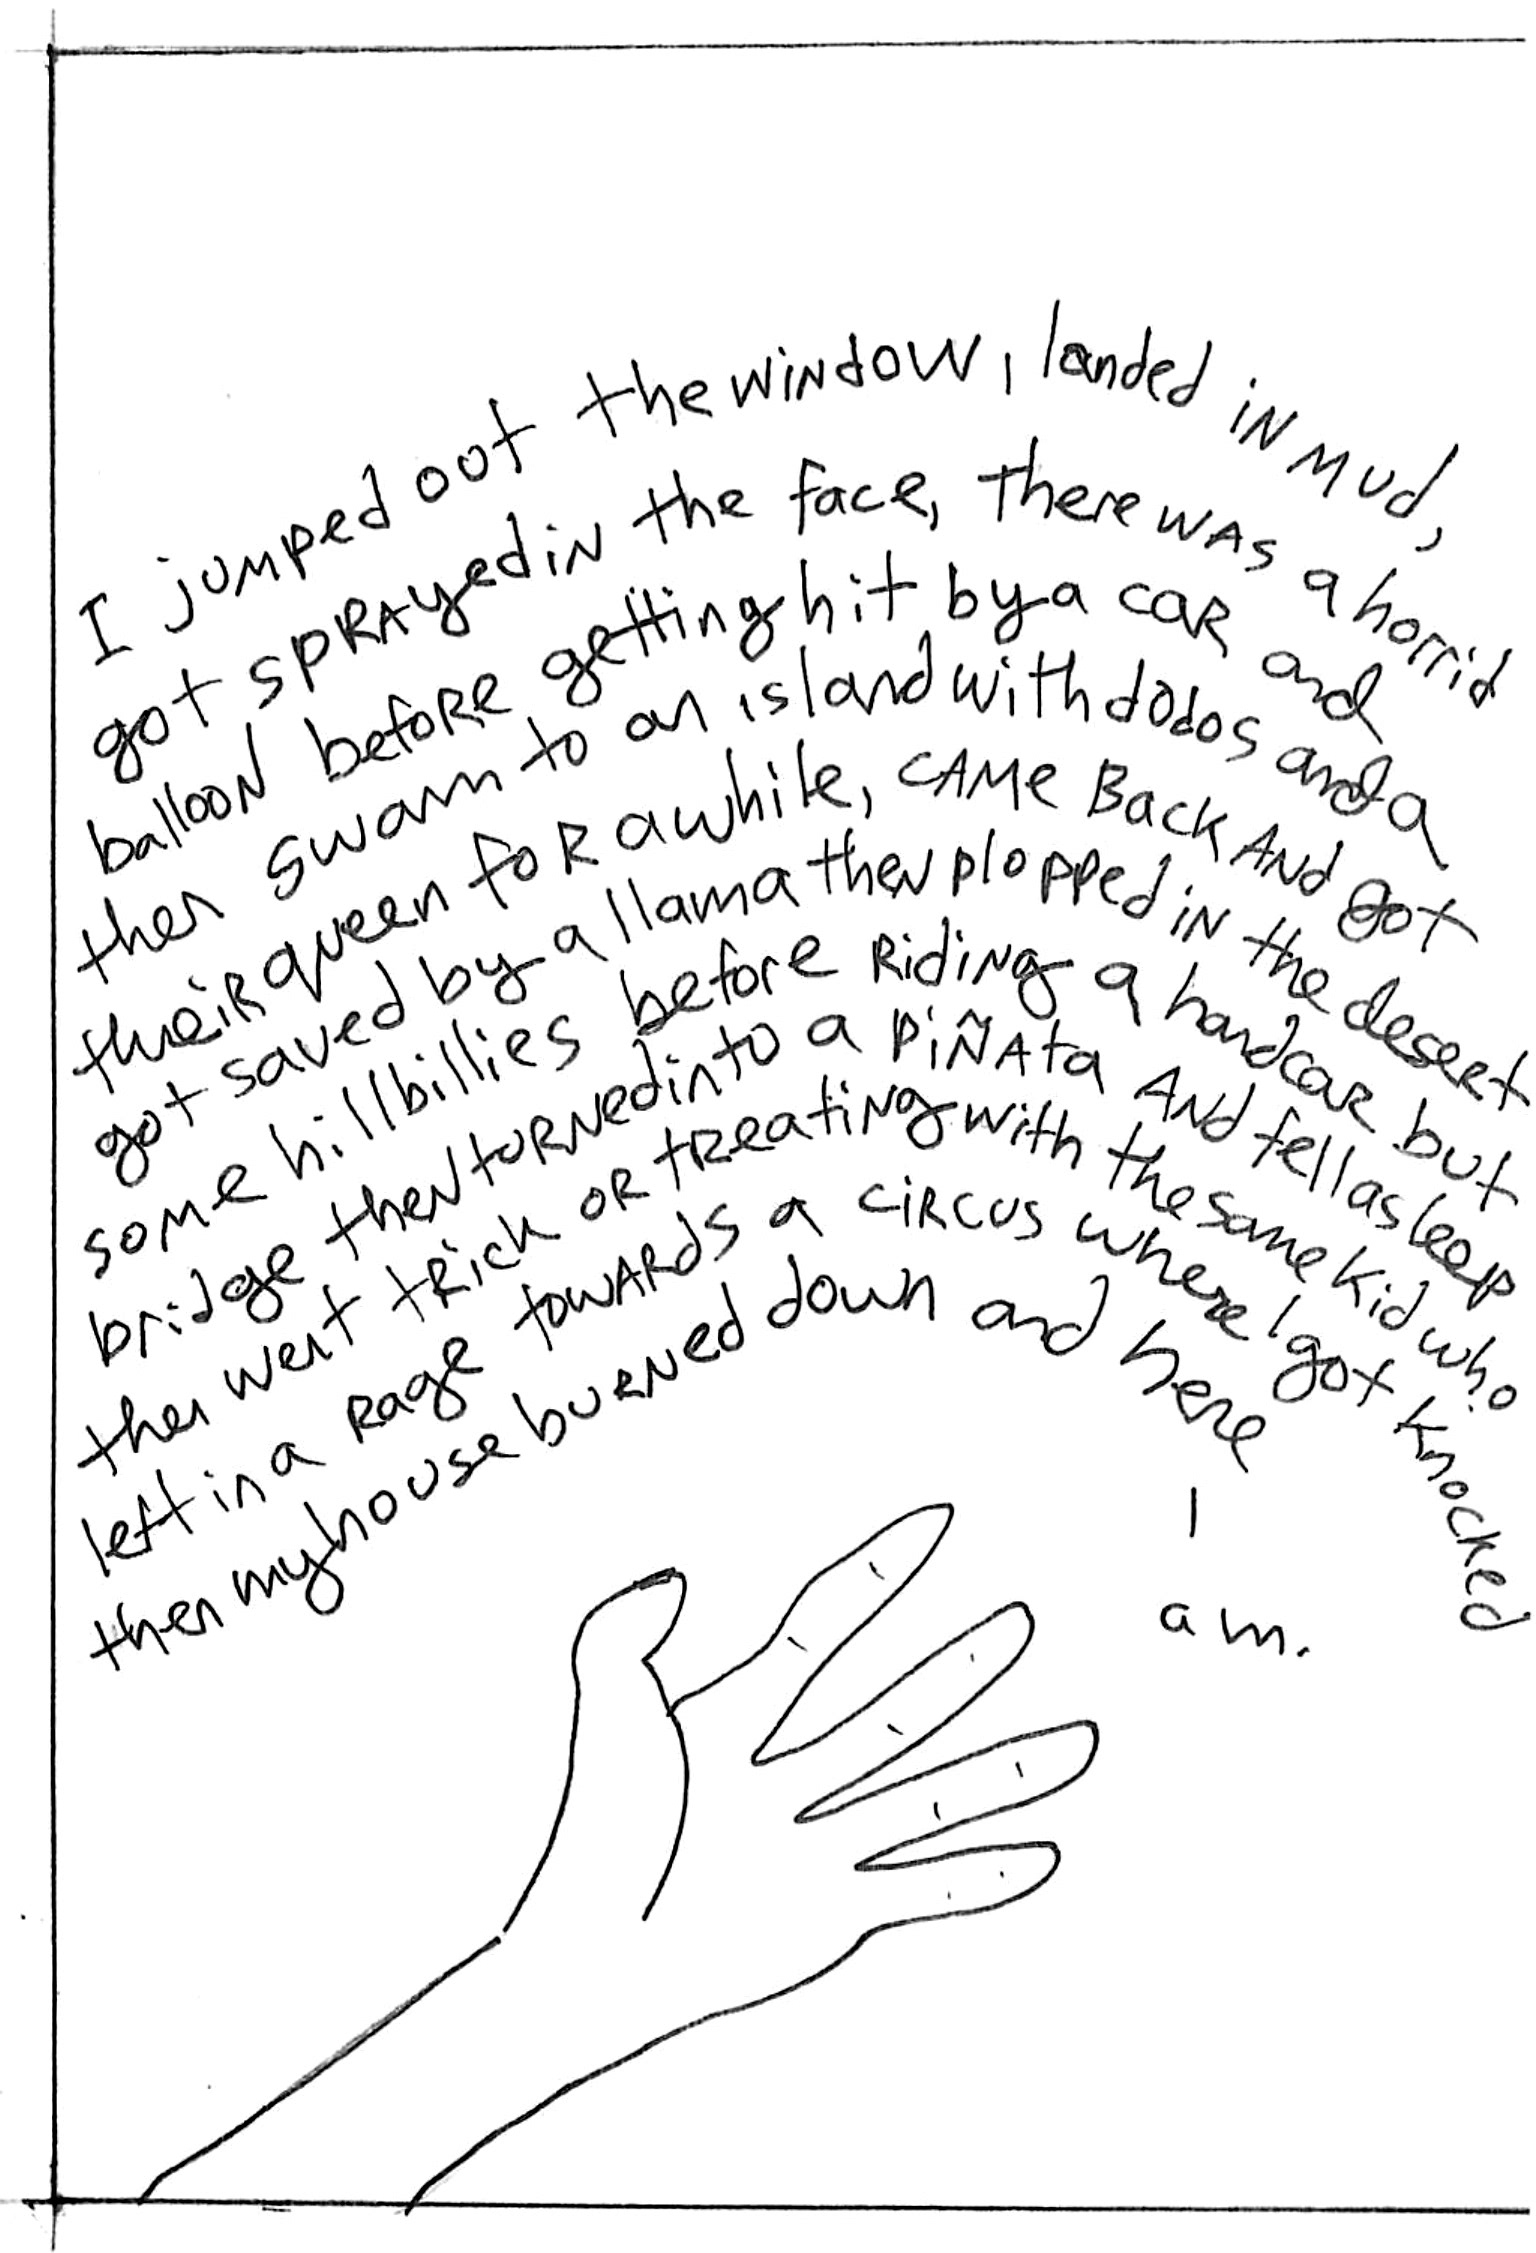 I jumped out the window, landed in mud,
got sprayed in the face, there was a horrid
balloon before getting hit by a car and
then swam to an island with dodos and a
their queen for awhile, came back and got
got saved by a llama then plopped in the desert
some hillbillies before riding a handcar but
bridge then turned into a piñata and fell asleep
then went trick or treating with the same kid who
left in a rage towards a circus where I got knocked
then my house burned down and here
I
am.